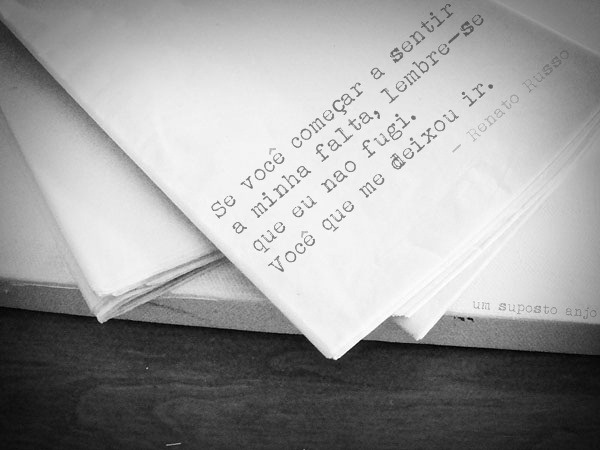 Se você começar a sentir
a minha falta, lembre-se
que eu nao fugi.
Você que me deixou ir.
- Renato Russo
um suposto anjo